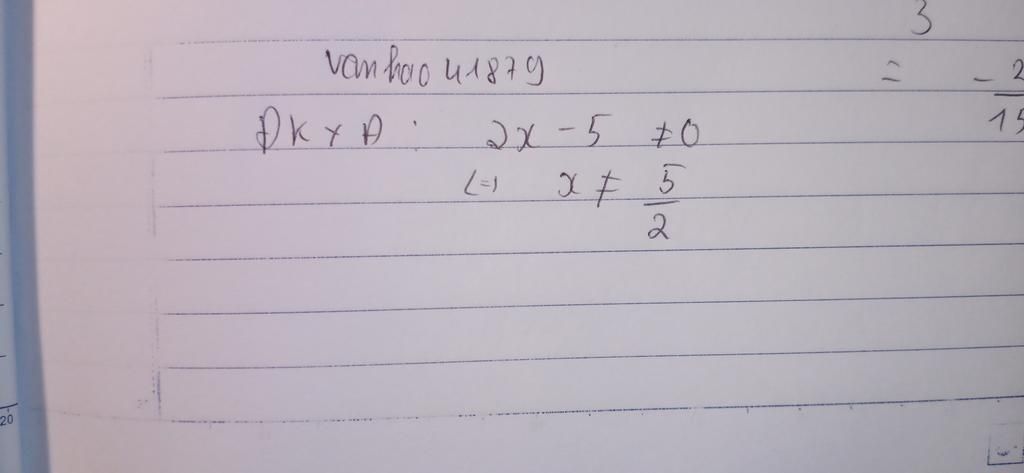 3
vanhao41879
= - 2/15
ĐKXĐ : 2x - 5 ≠ 0
<=> x ≠ 5/2
20